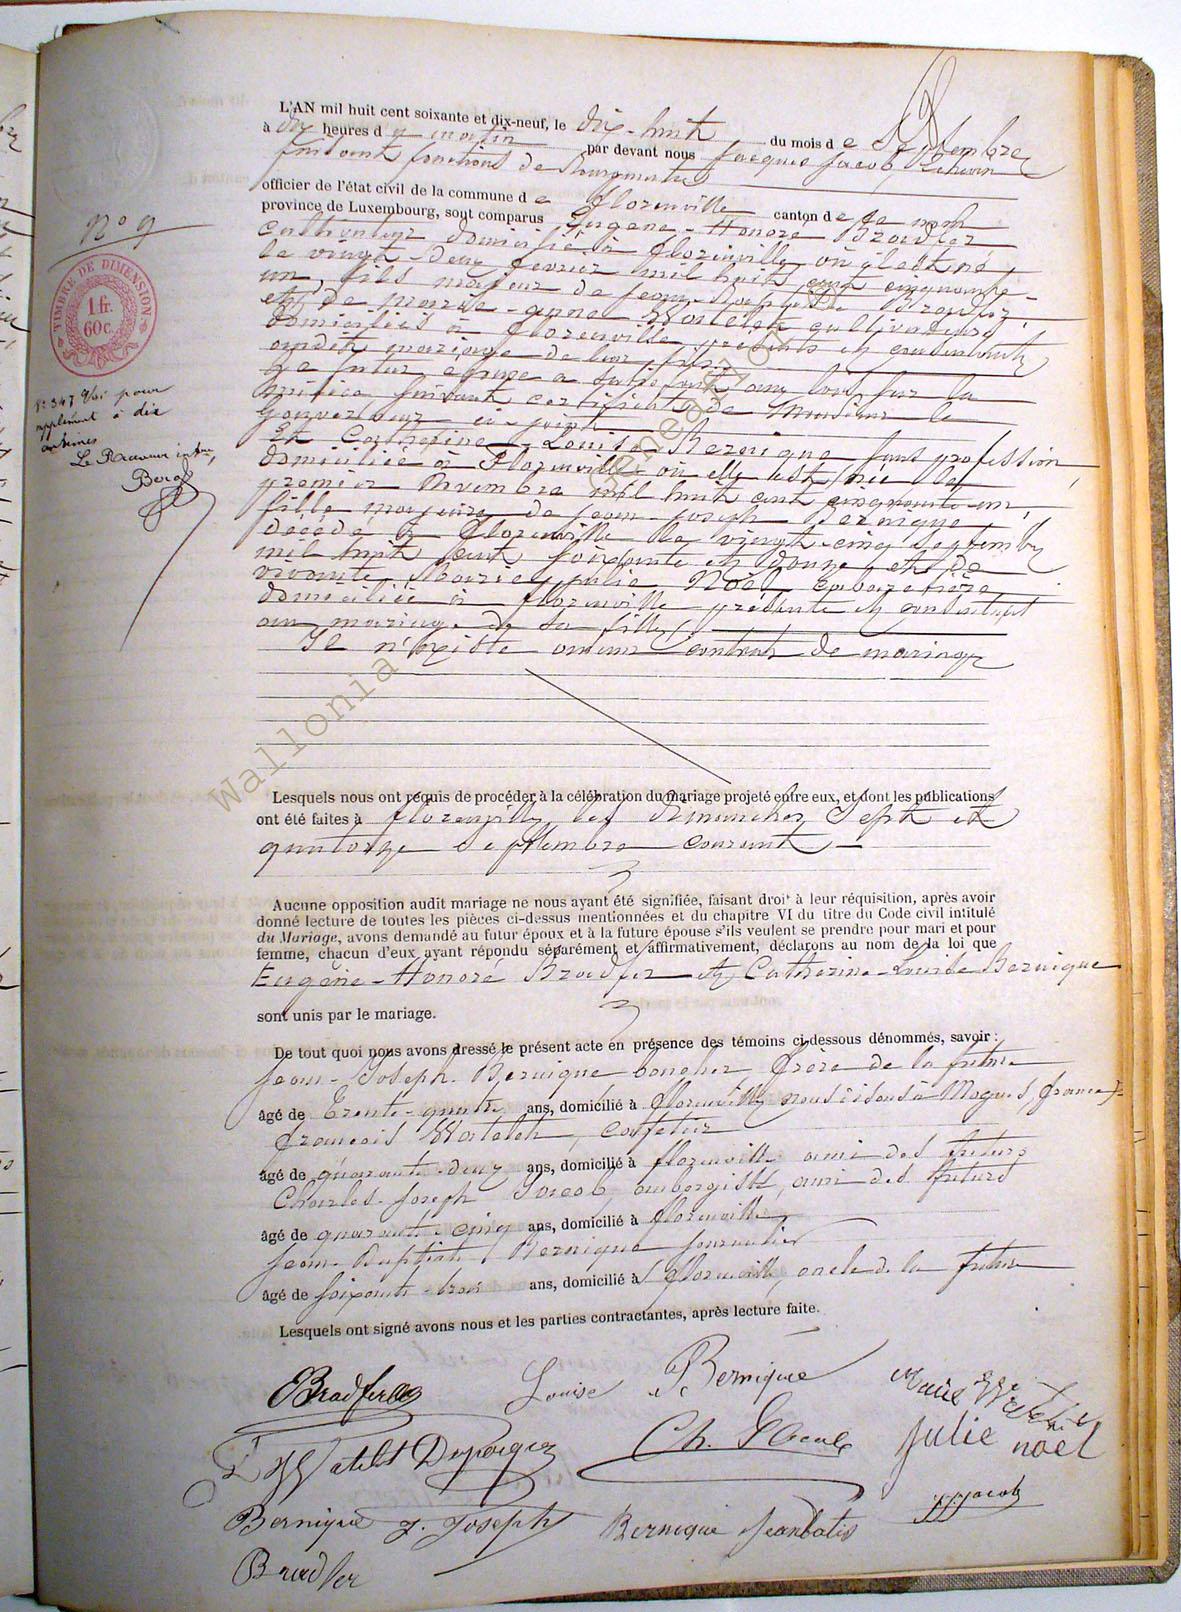 L'AN mil huit cent soixante et dix-neuf, le dix-huit du mois de Septembre
à dix heures du matin par devant nous Jacques Jacob, Echevin
faisant fonctions de Bourgmestre
officier de l'état civil de la commune de Florenville canton de ce nom
province de Luxembourg, sont comparus Eugène-Honoré Bradfer
cultivateur domicilié à Florenville où il est né,
le vingt-deux février mil huit cent cinquante-
un, fils majeur de Jean-Bradfer,
et de Marie-Anne Watelet cultivateurs
domiciliés à Florenville présents et consentants
audit mariage de leur fils.
Le futur époux a satisfait aux lois sur la
milice suivant certificat de Monsieur le
Gouverneur ci-joint.
Et Catherine-Louise Bernique sans profession
domiciliée à Florenville où elle est née le
premier Novembre mil huit cent cinquante-un,
fille majeure de Jean-Joseph Bernique,
décédé à Florenville le vingt-cinq septembre
mil huit cent soixante et donze, et de
vivante Marie Julie Noël cabaretière
domiciliée à Florenville présente et consentant
au mariage de sa fille.
Il n'existe aucun contrat de mariage
Lesquels nous ont requis de procéder à la célébration du mariage projeté entre eux, et dont les publications
ont été faites à Florenville les Dimanches Sept et
quatorze Septembre courant
Aucune opposition audit mariage ne nous ayant été signifiée, faisant droit à leur réquisition, après avoir
donné lecture de toutes les pièces ci-dessus mentionnées et du chapitre VI du titre du Code civil intitulé
du Mariage, avons demandé au futur époux et à la future épouse s'ils veulent se prendre pour mari et pour
femme, chacun d'eux ayant répondu séparément et affirmativement, déclarons au nom de la loi que
Eugène-Honoré Bradfer et Catherine-Louise Bernique
sont unis par le mariage.
De tout quoi nous avons dressé le présent acte en présence des témoins ci-dessous dénommés, savoir :
Jean-Joseph Bernique boucher frère de la future
âgé de Trente-quatre ans, domicilié à Mogues, france
François Watelet,
âgé de quarante-deux ans, domicilié à florenville ami des futurs
Charles-Joseph Jacob, aubergiste, ami des futurs
âgé de quarante-cinq ans, domicilié à florenville
Jean-Baptiste Bernique journalier
âgé de soixante-trois ans, domicilié à florenville, oncle de la future
Lesquels ont signé avons nous et les parties contractantes, après lecture faite.
Bradfer Louise Bernique Marie
Watelet Ch. Julie noel
Bernique J. Joseph Bernique Jeanbatis jjjacob
Bradfer
N° 9
TIMBRE DE DIMENSION
1 fr.
60 c.
N° 347 pour
supplément à dix
centimes
Le Receveur
Wallonia Genealogie